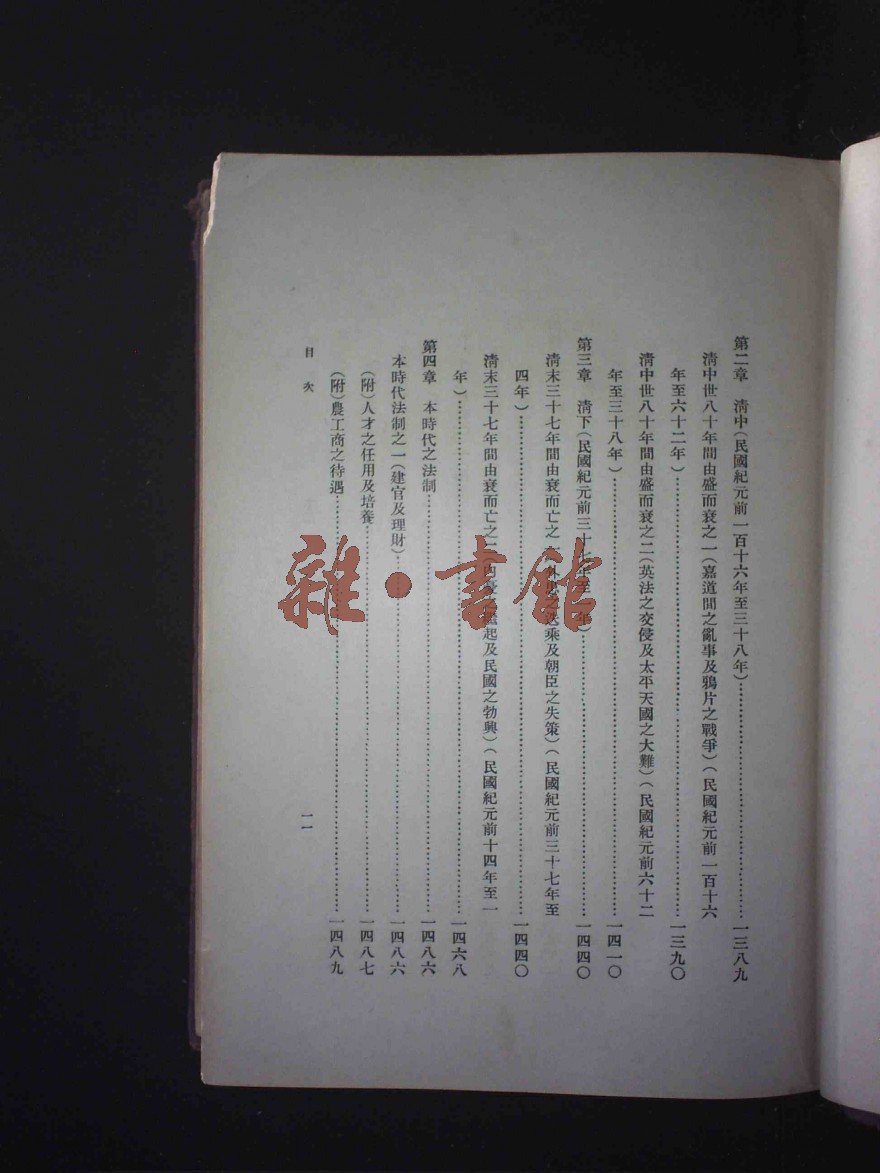 第二章　淸中(民國紀元前一百十六年至三十八年)……一三八九
淸中世八十年間由盛而衰之一(嘉道間之亂事及鴉片之戰爭)(民國紀元前一百十六
年至六十二年)……一三九〇
淸中世八十年間由盛而衰之二(英法之交侵及太平天國之大難)(民國紀元前六十二
年至三十八年)……一四一〇
第三章　淸下(民國紀元前三十七年至一年)……一四四〇
淸末三十七年間由衰而亡之一 及朝臣之失策)(民國紀元前三十七年至
四年)……一四四〇
淸末三十七年間由衰而亡之二 起及民國之勃興)(民國紀元前十四年至一
年)……一四六八
第四章　本時代之法制……一四八六
本時代法制之一(建官及理財)……一四八六
(附)人才之任用及培養……一四八七
(附)農工商之待遇……一四八九
目次
一一
雜·書館